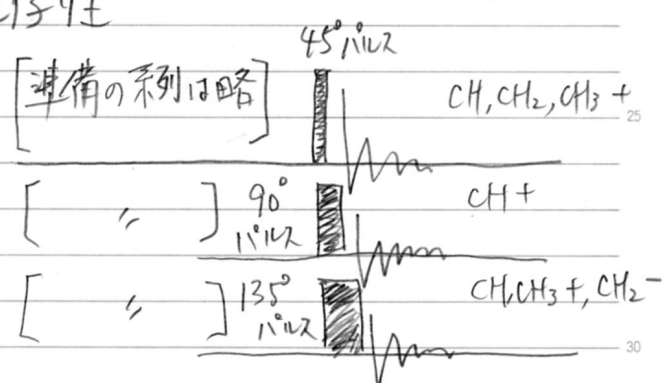 45°パルス
[準備の系列は略] CH, CH2, CH3 +
25
[ 〃 ] 90° パルス CH +
[ 〃 ] 135° パルス CH, CH3 +, CH2 −
30